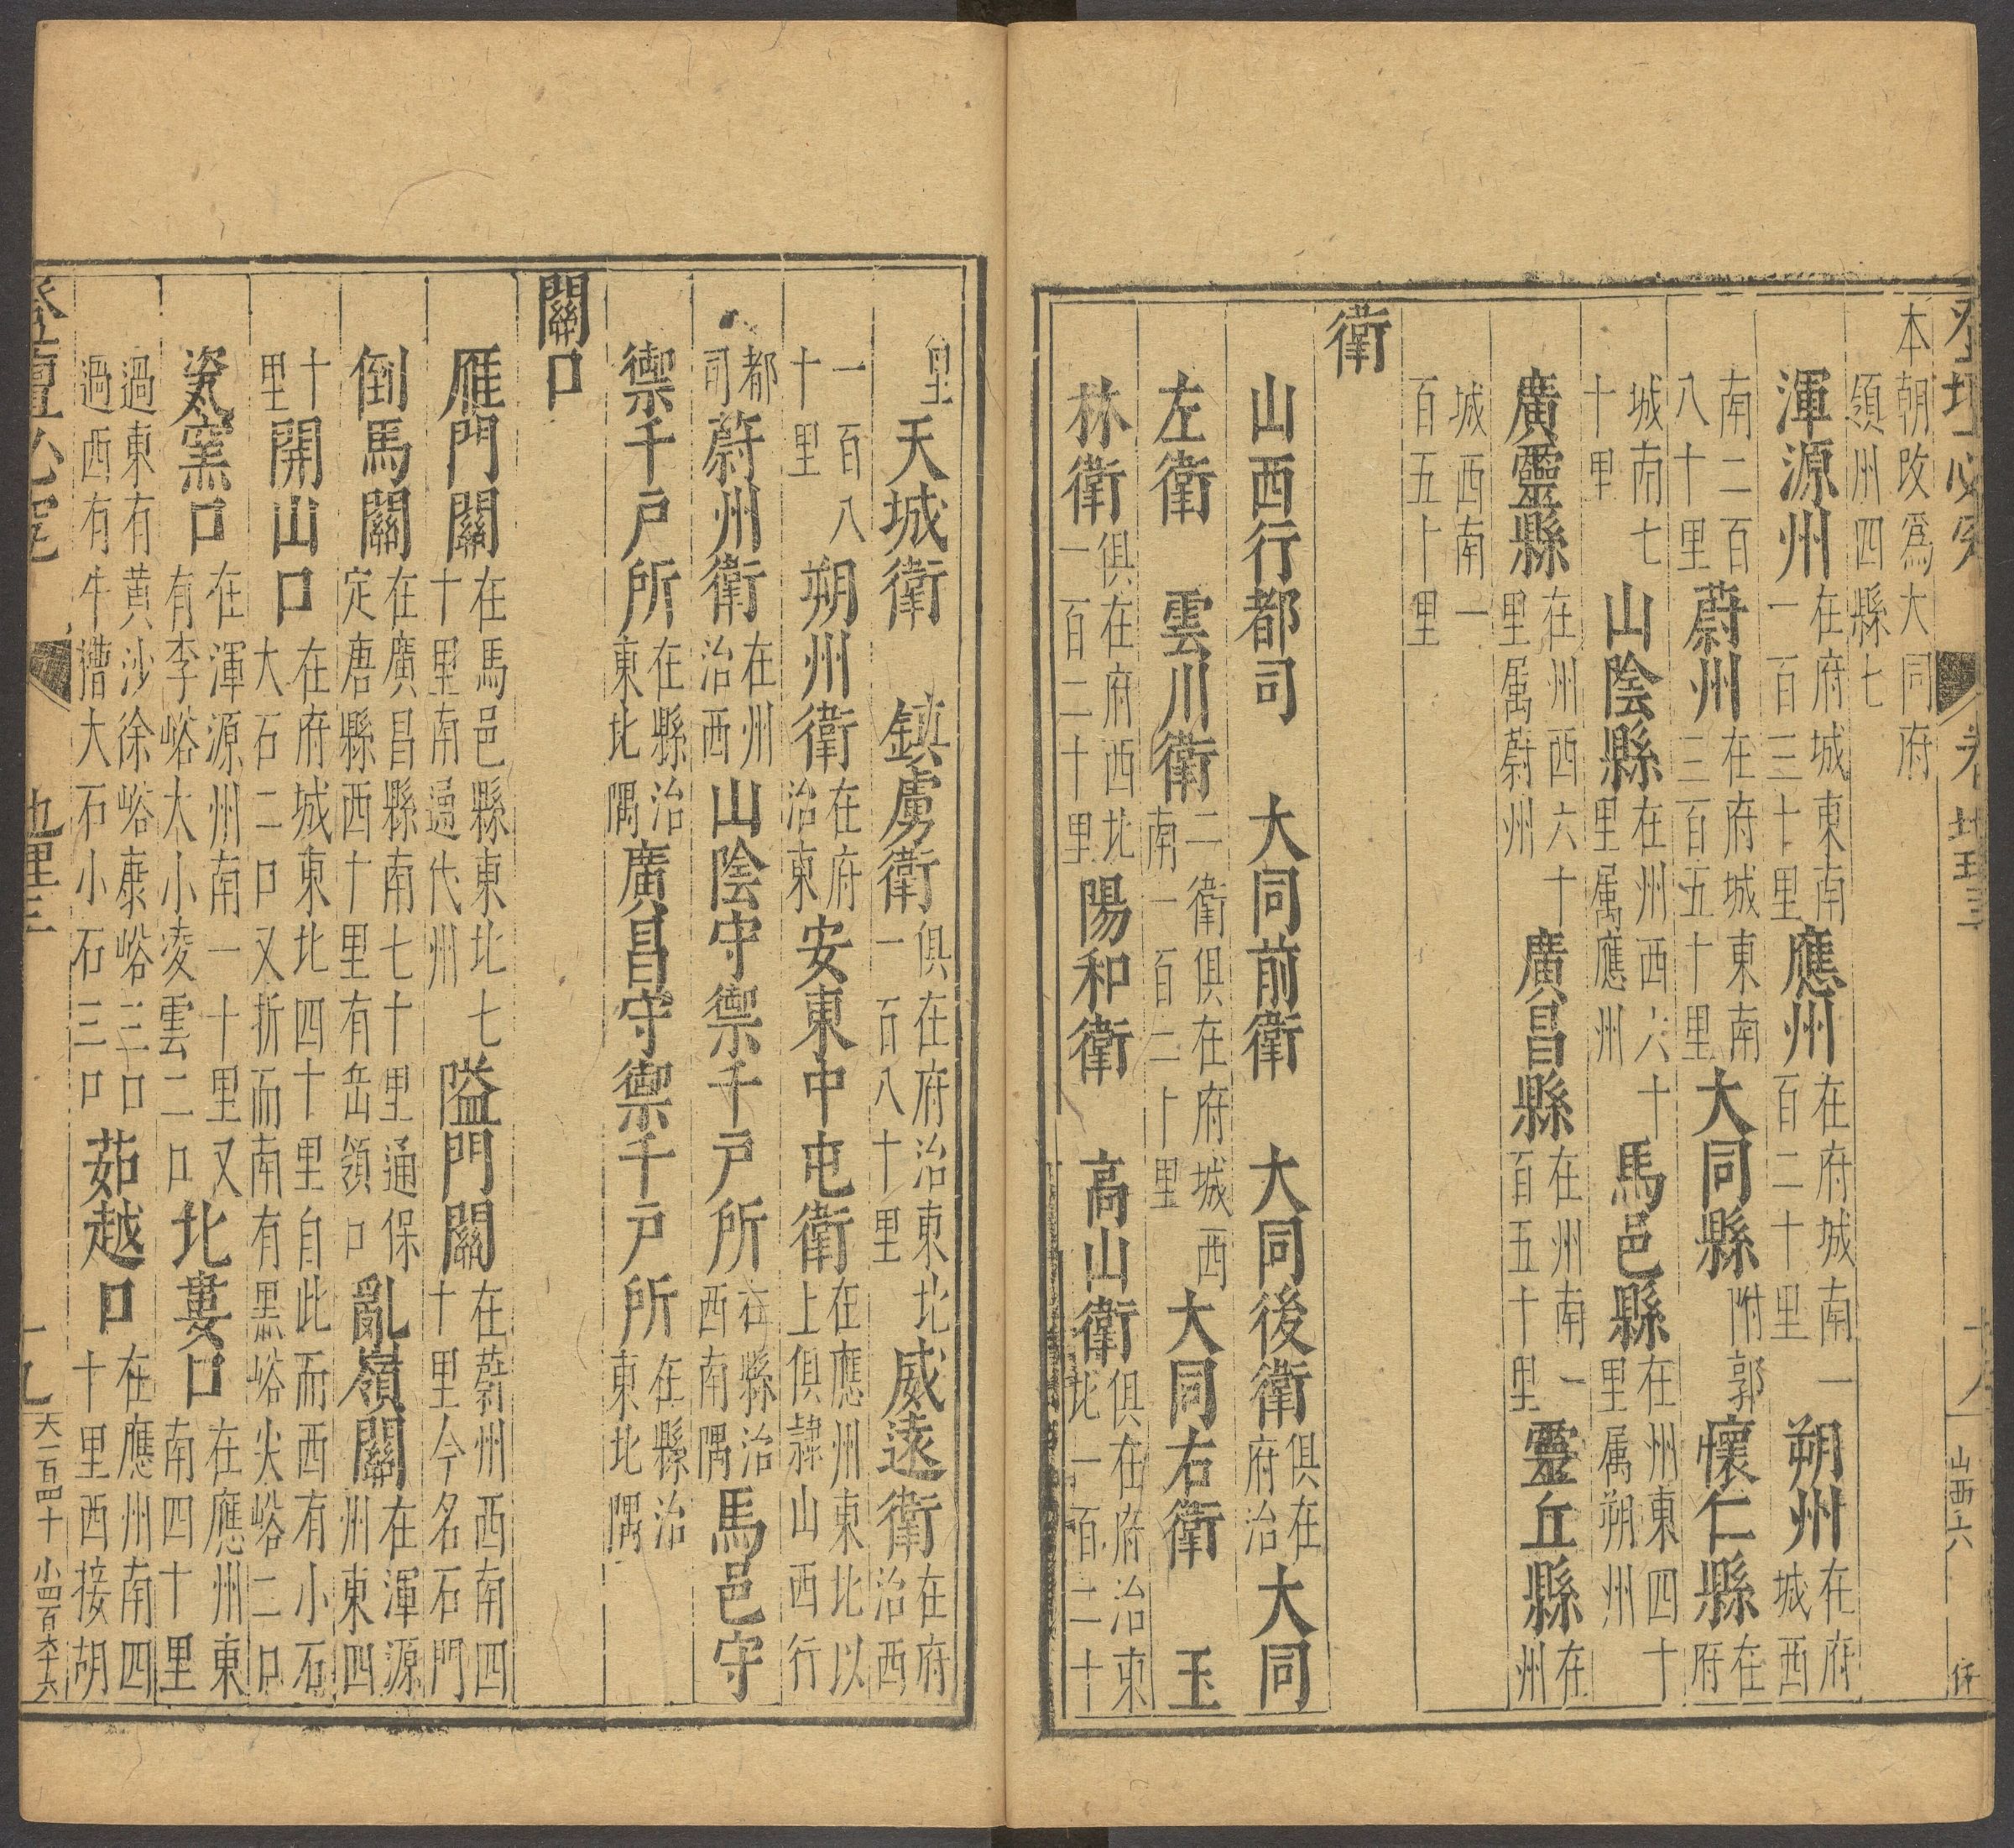 卷 地理三 山西六
本朝改爲大同府
領州四縣七
渾源州在府城東南一百三十里應州在府城南一百二十里朔州在府城西
南二百八十里蔚州在府城東南三百五十里大同縣附郭懷仁縣在府
城南七十里山陰縣在州西六十里属應州馬邑縣在州東四十里属朔州
廣靈縣在州西六十里属蔚州廣昌縣在州南一百五十里靈丘縣在州
城西南一百五十里
衛
山西行都司 大同前衛 大同後衛俱在府治大同
左衛 雲川衛二衛俱在府城西南一百二十里大同右衛 玉
林衛俱在府西北一百二十里陽和衛 高山衛俱在府治東北一百二十
里天城衛 鎮虜衛俱在府治東北一百八十里威遠衛在府治西
一百八十里朔州衛在府治東安東中屯衛在應州東北以上俱隸山西行
都司蔚州衛在州治西山陰守禦千戶所在縣治西南隅馬邑守
禦千戶所在縣治東北隅廣昌守禦千戶所在縣治東北隅
關口
雁門關在馬邑縣東北七十里南通代州隘門關在蔚州西南四十里今名石門
倒馬關在廣昌縣南七十里通保定唐縣西十里有岳嶺口亂嶺關在渾源州東四
十里開山口在府城東北四十里自此而西有小石大石二口又折而南有黑峪尖峪二口
瓷窯口在渾源州南一十里又有李峪太小凌雲二口北婁口在應州東南四十里
過東有黄沙徐峪康峪三口過西有牛槽大石小石三口茹越口在應州南四十里西接胡
登壇必究 地理三 十九 大一百四十 小四百六十六